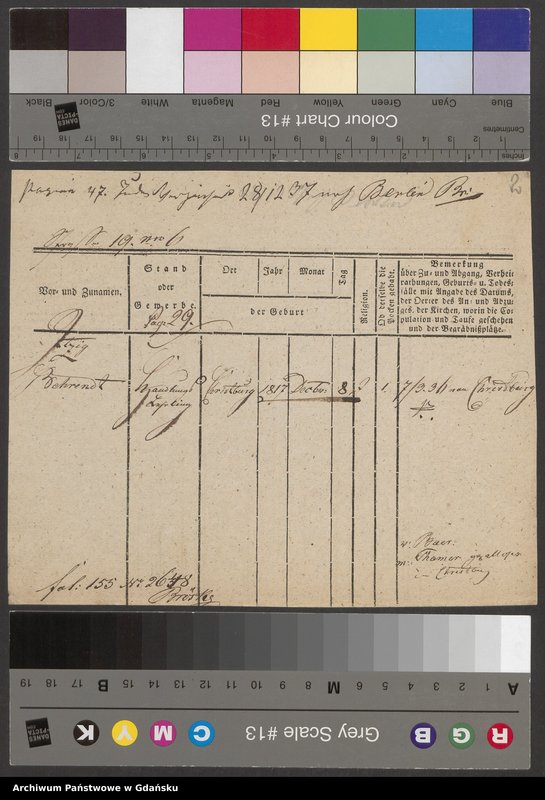 Blue Cyan Green Yellow Red Magenta White 3/Color Black
Colour Chart #13
DANES PICTA .COM
Centimetres
Inches
47. 28/12 37 nach Berlin
2
19. nro 6
Vor= und Zunamen.
Stand
oder
Gewerbe.
Pag: 29.
Ort
Jahr
Monat
Tag
der Geburt
Religion.
Ob derselbe die Pocken gehabt.
Bemerkung
über Zu= und Abgang, Verhei=
rathungen, Geburts= u. Todes=
fälle mit Angabe des Datums,
der Oerter des An= und Abzu=
ges, der Kirchen, worin die Co=
pulation und Taufe geschehen
und der Begräbnißplätze.
Itzig
Behrendt
Handlungs
Lehrling
Christburg
1817
Decbr
8
1.
7/3. 36 von Christburg
v: Baer.
m: Thamar
Christburg
fol: 155 No 2648
19 18 17 B 15 14 13 12 11 10 9 8 7 M 5 4 3 2 1 A
K Y M C
Grey Scale #13
B G R
Archiwum Państwowe w Gdańsku